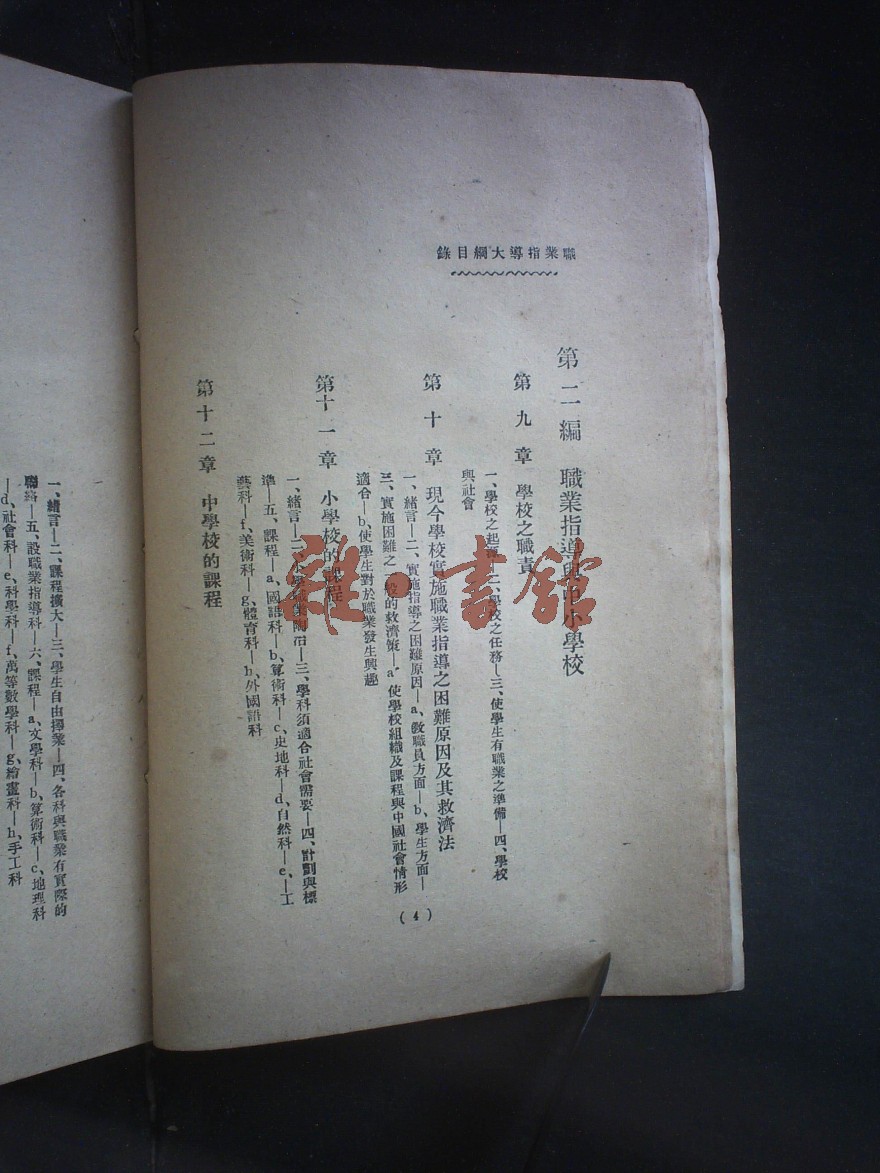 職業指導大綱目錄
第二編 職業指導與中小學校
第九章 學校之職責
一、學校之起 二、學校之任務—三、使學生有職業之準備—四、學校
與社會
第十章 現今學校實施職業指導之困難原因及其救濟法
一、緒言—二、實施指導之困難原因—a、敎職員方面—b、學生方面—
三、實施困難之 般的救濟策—a、使學校組織及課程與中國社會情形
適合—b、使學生對於職業發生興趣
第十一章 小學校的課程
一、緒言—二、小學職業陶冶—三、學科須適合社會需要—四、計劃與標
準—五、課程—a、國語科—b、算術科—c、史地科—d、自然科—e、工
藝科—f、美術科—g、體育科—h、外國語科
第十二章 中學校的課程
(4)
一、緒言—二、課程擴大—三、學生自由擇業—四、各科與職業有實際的
聯絡—五、設職業指導科—六、課程—a、文學科—b、算術科—c、地理科
—d、社會科—e、科學科—f、萬等數學科—g、繪畫科—h、手工科
雜·書館